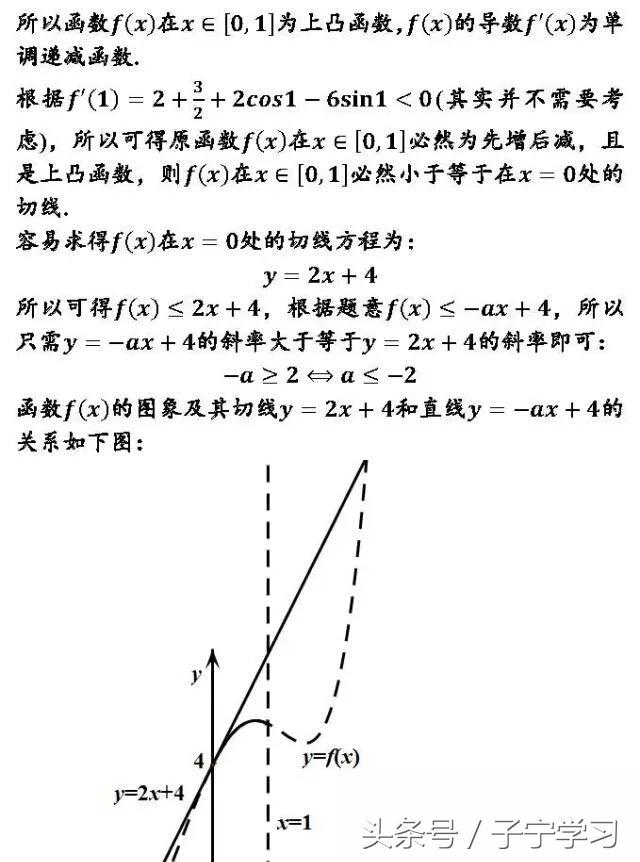 所以函数f(x)在x∈[0,1]为上凸函数,f(x)的导数f′(x)为单
调递减函数.
根据f′(1)=2+3/2+2cos1−6sin1<0(其实并不需要考
虑)，所以可得原函数f(x)在x∈[0,1]必然为先增后减，且
是上凸函数，则f(x)在x∈[0,1]必然小于等于在x=0处的
切线.
容易求得f(x)在x=0处的切线方程为：
y=2x+4
所以可得f(x)≤2x+4，根据题意f(x)≤−ax+4，所以
只需y=−ax+4的斜率大于等于y=2x+4的斜率即可：
−a≥2⟺a≤−2
函数f(x)的图象及其切线y=2x+4和直线y=−ax+4的
关系如下图：
y
4
y=f(x)
y=2x+4
x=1
头条号 / 子宁学习